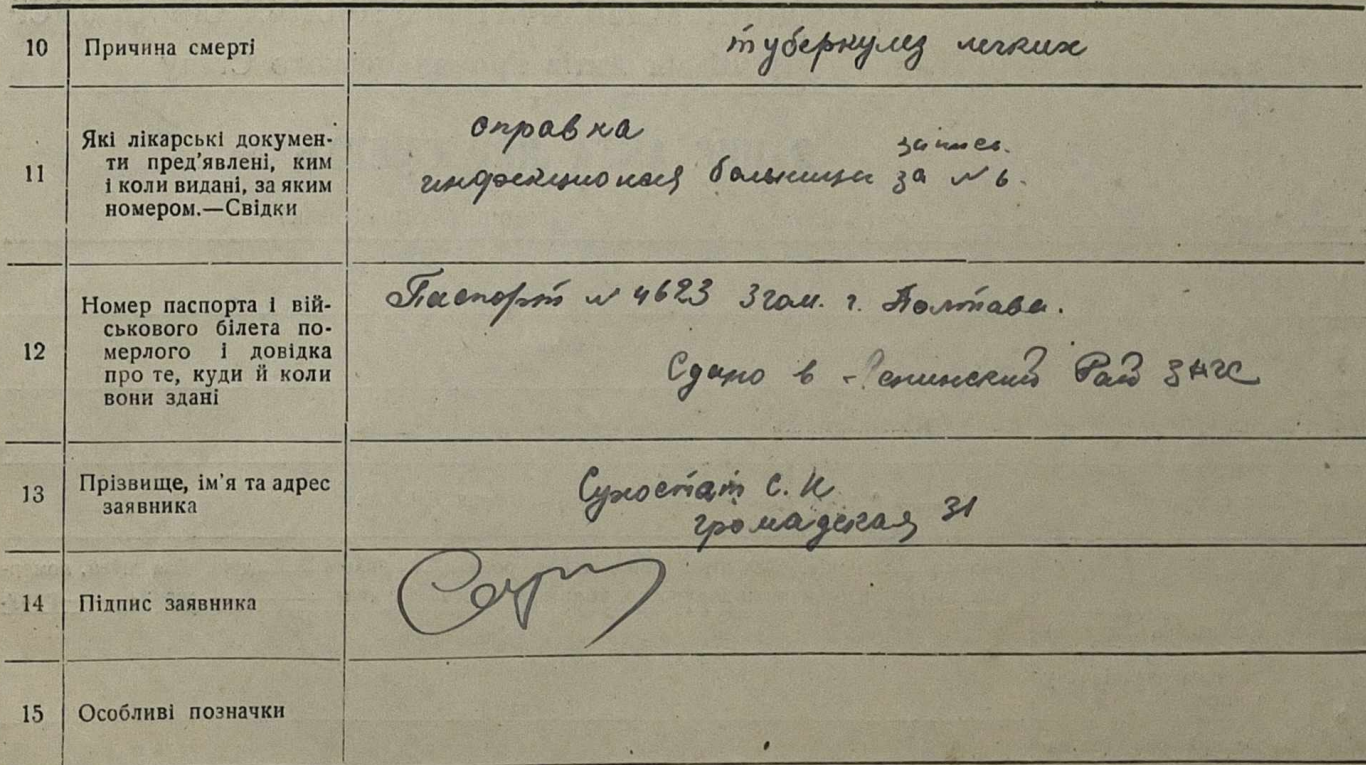 10 Причина смерті туберкулез легких
11 Які лікарські докумен-
ти пред'явлені, ким
і коли видані, за яким
номером.—Свідки
справка
запись.
инфекционая больницы за № 6.
12 Номер паспорта і вій-
ськового білета по-
мерлого і довідка
про те, куди й коли
вони здані
Паспорт № 4623 3 гом. г. Полтава.
Сдано в Ленинский Рай ЗАГС
13 Прізвище, ім'я та адрес
заявника
Сухостат С. И
громадская 31
14 Підпис заявника
15 Особливі позначки